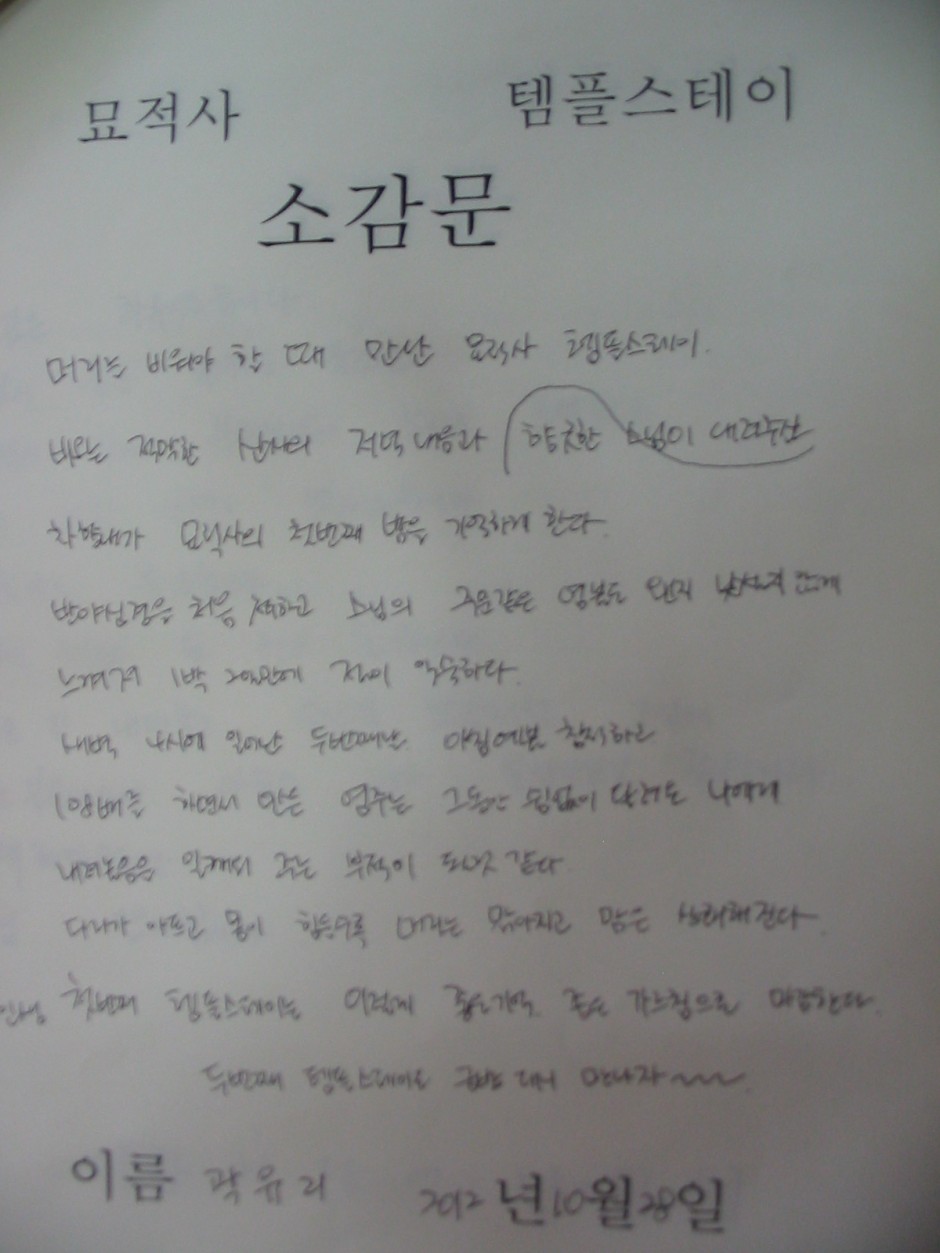 묘적사 템플스테이
소감문
머리는 비워야 할 때 만난 묘적사 템플스테이.
비오는 적막한 산사의 저녁내음과 향긋한 스님이 내려주신
차향내가 묘적사의 첫번째 밤을 기억하게 한다.
반야심경을 처음 접하고 스님의 주문같은 염불도 왠지 낯설지 않게
느껴져 1박 2일만에 절이 익숙하다.
새벽 4시에 일어난 두번째날 아침예불 참석하고
108배를 하면서 만든 염주는 그동안 쉼없이 달려온 나에게
내려놓음을 일깨워 주는 부적이 된것 같다
다리가 아프고 몸이 힘들수록 머리는 맑아지고 맘은 상쾌해진다.
인생 첫번째 템플스테이는 이렇게 좋은기억 좋은 가르침으로 마감한다.
두번째 템플스테이도 금방 다시 만나자~~~
이름 곽유리 2012년 10월 28일